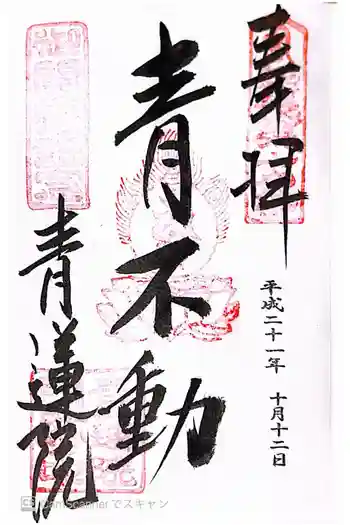 奉拝
平成二十一年 十月十二日
青不動
青蓮院
CamScannerでスキャン